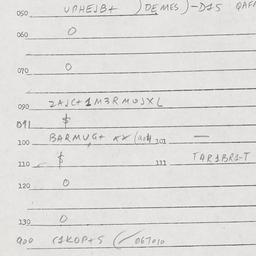 050 UPHEJB+ ) DEMES )-D15
060 0
070 0
090 2AJC+1M3RMUJXL
091 $
100 BARMUG+ 101 —
110 $ 111 TAR1BR1-T
120 0
130 0
900 C1KOP+S ( 067010